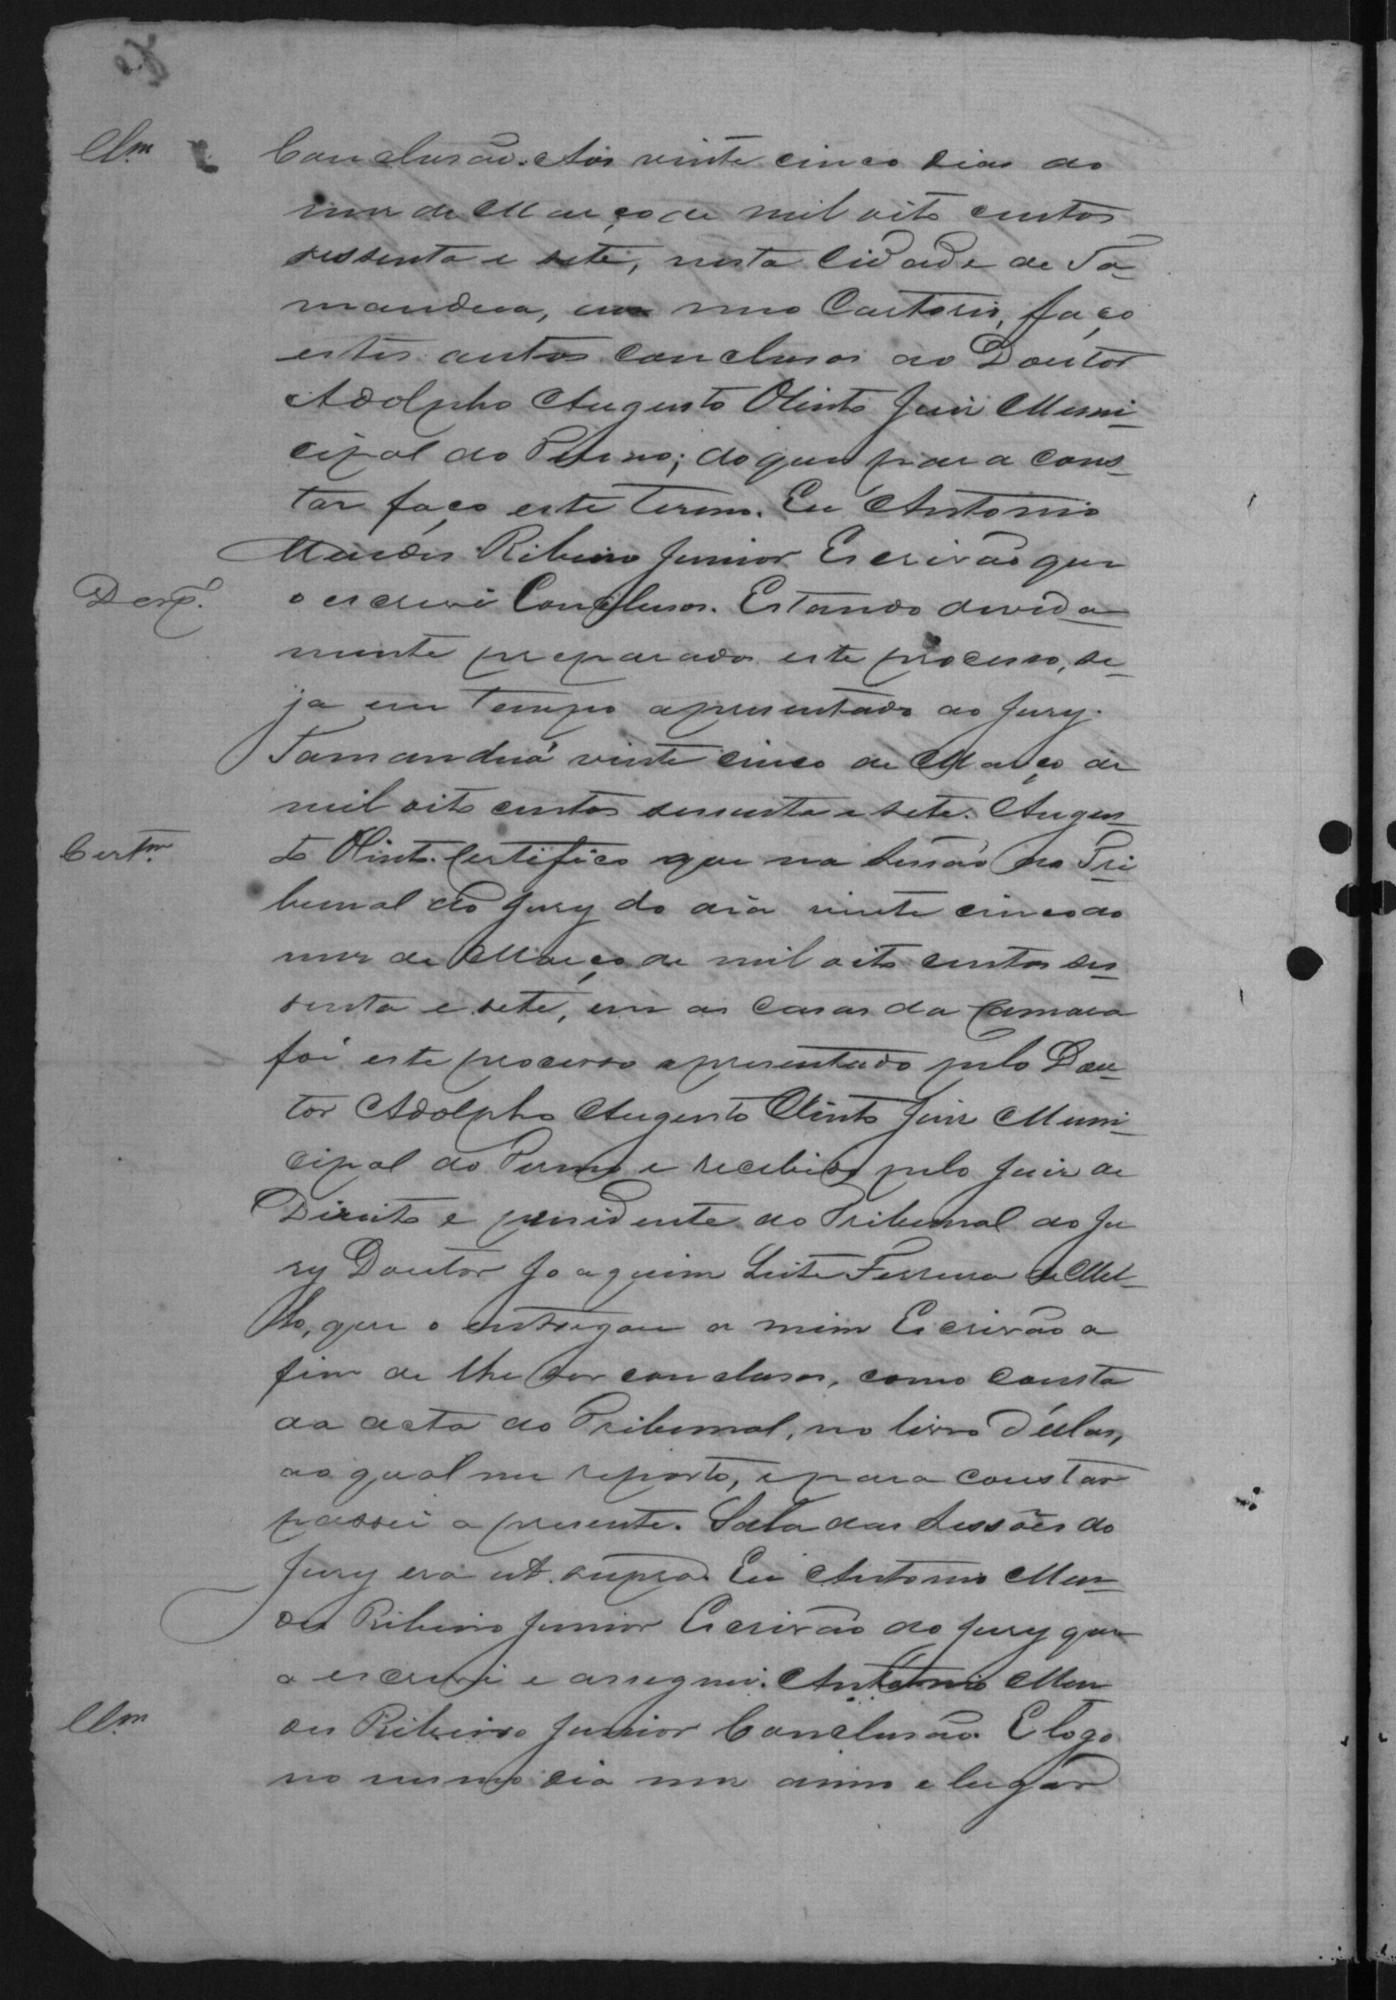 Clm
Conclusão. Aos vinte cinco dias do
mez de Março de mil oito centos
sessenta e sete, nesta Cidade de Ta-
mandua, em meo Cartorio, faço
estes autos conclusos ao Doutor
Adolpho Augusto Olinto Juiz Muni-
cipal do Termo; do que para cons-
tar faço este termo. Eu Antonio
Mendes Ribeiro Junior Escrivão que
Desp.º
o escrevi Conclusos. Estando devida-
mente preparado este processo, se-
ja em tempo apresentado ao Jury.
Tamanduá vinte cinco de Março de
mil oito centos sessenta e sete. Augus-
Certm
to Olinto. Certifico que na Sessão no Tri
bunal do Jury do dia vinte cinco do
mez de Março de mil oito centos ses-
senta e sete, em as casas da Camara
foi este processo apresentado pelo Dou-
tor Adolpho Augusto Olinto Juiz Muni-
cipal do Termo e recebido pelo Juiz de
Direito e presidente do Tribunal do Ju
ry Doutor Joaquim Leite Ferreira de Mel-
lo, que o entregou a mim Escrivão a
fim de lhe ser conclusos, como consta
da acta do Tribunal, no livro d'ellas,
ao qual me reporto, e para constar
passei a presente. Sala das Sessões do
Jury era ut supra. Eu Antonio Men-
des Ribeiro Junior Escrivão do Jury que
o escrevi e assignei. Antonio Men
Clm
des Ribeiro Junior Conclusão. E logo
no mesmo dia mez anno e lugar